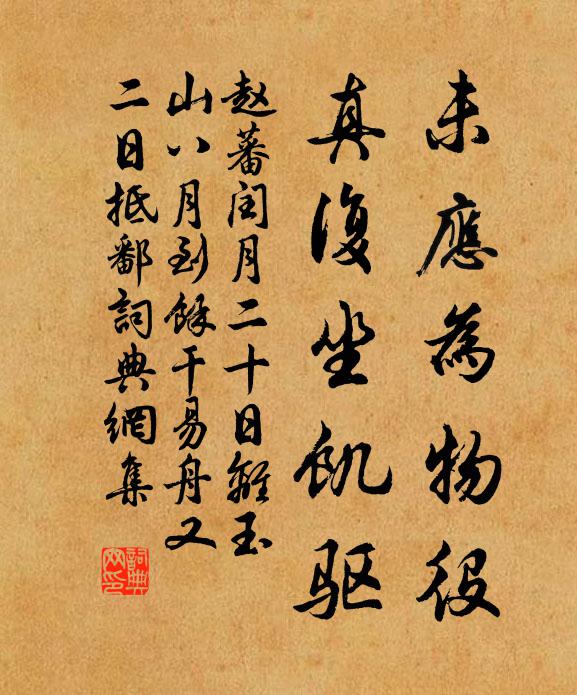 未應為物役
真復坐飢驅
赵蕃闰月二十日離玉
山八月到餘干易舟又
二日抵鄱詞典網集
詞典網印